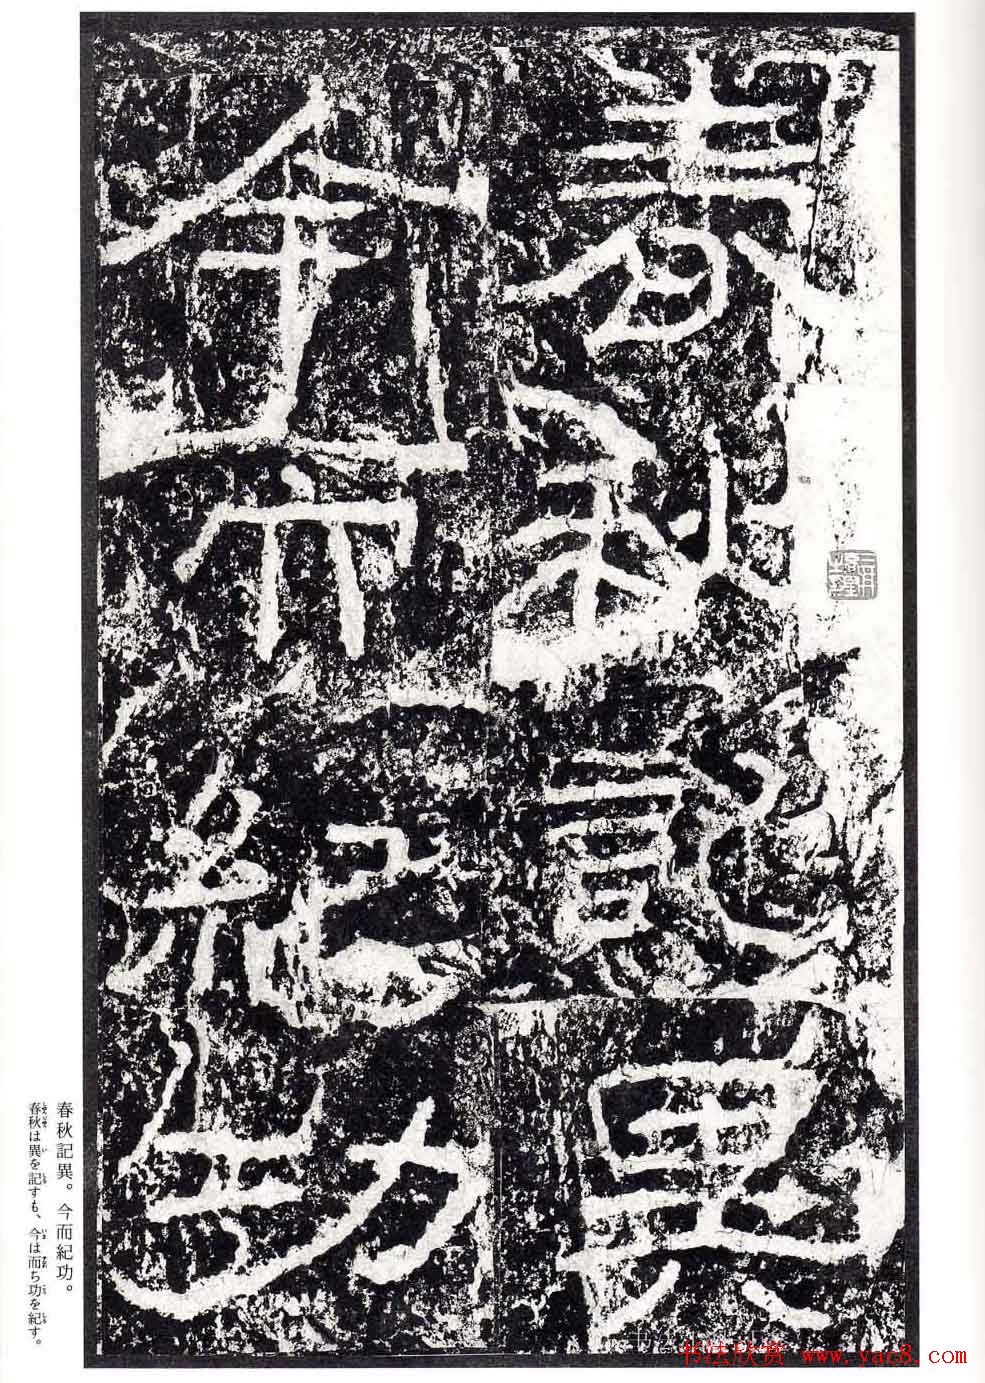 春秋記異
今而紀功
春秋記異。今而紀功。
春秋は異を記すも、今は而ち功を紀す。
书法欣赏 www.yac8.com